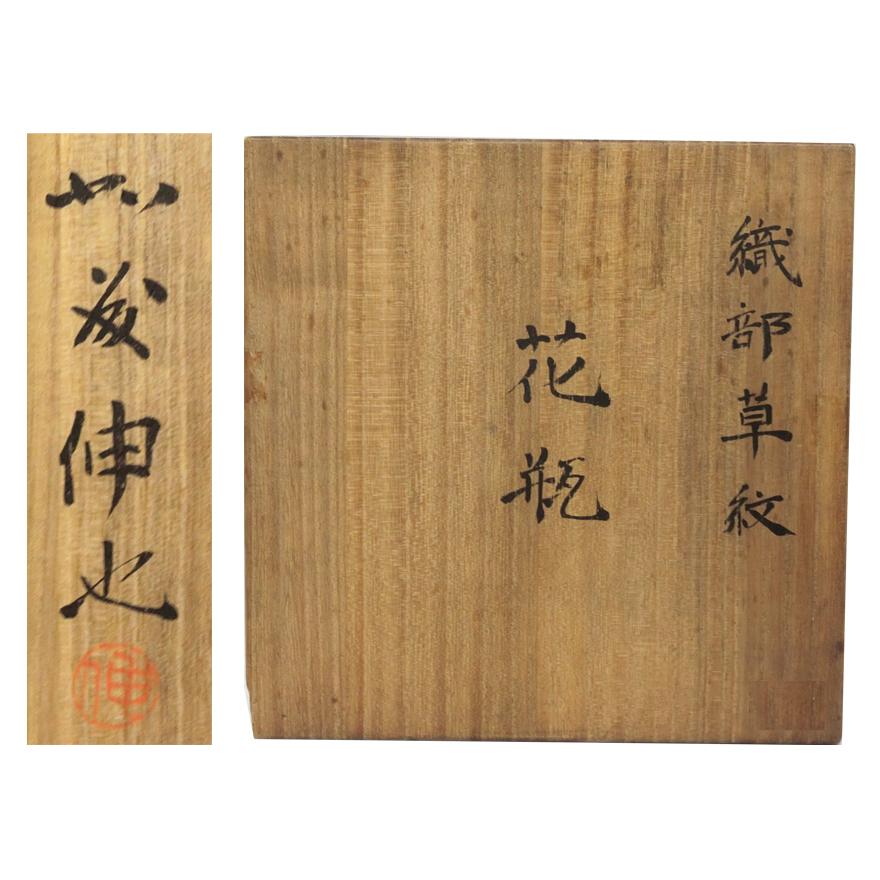 織部草紋
花瓶
加藤伸也
伸